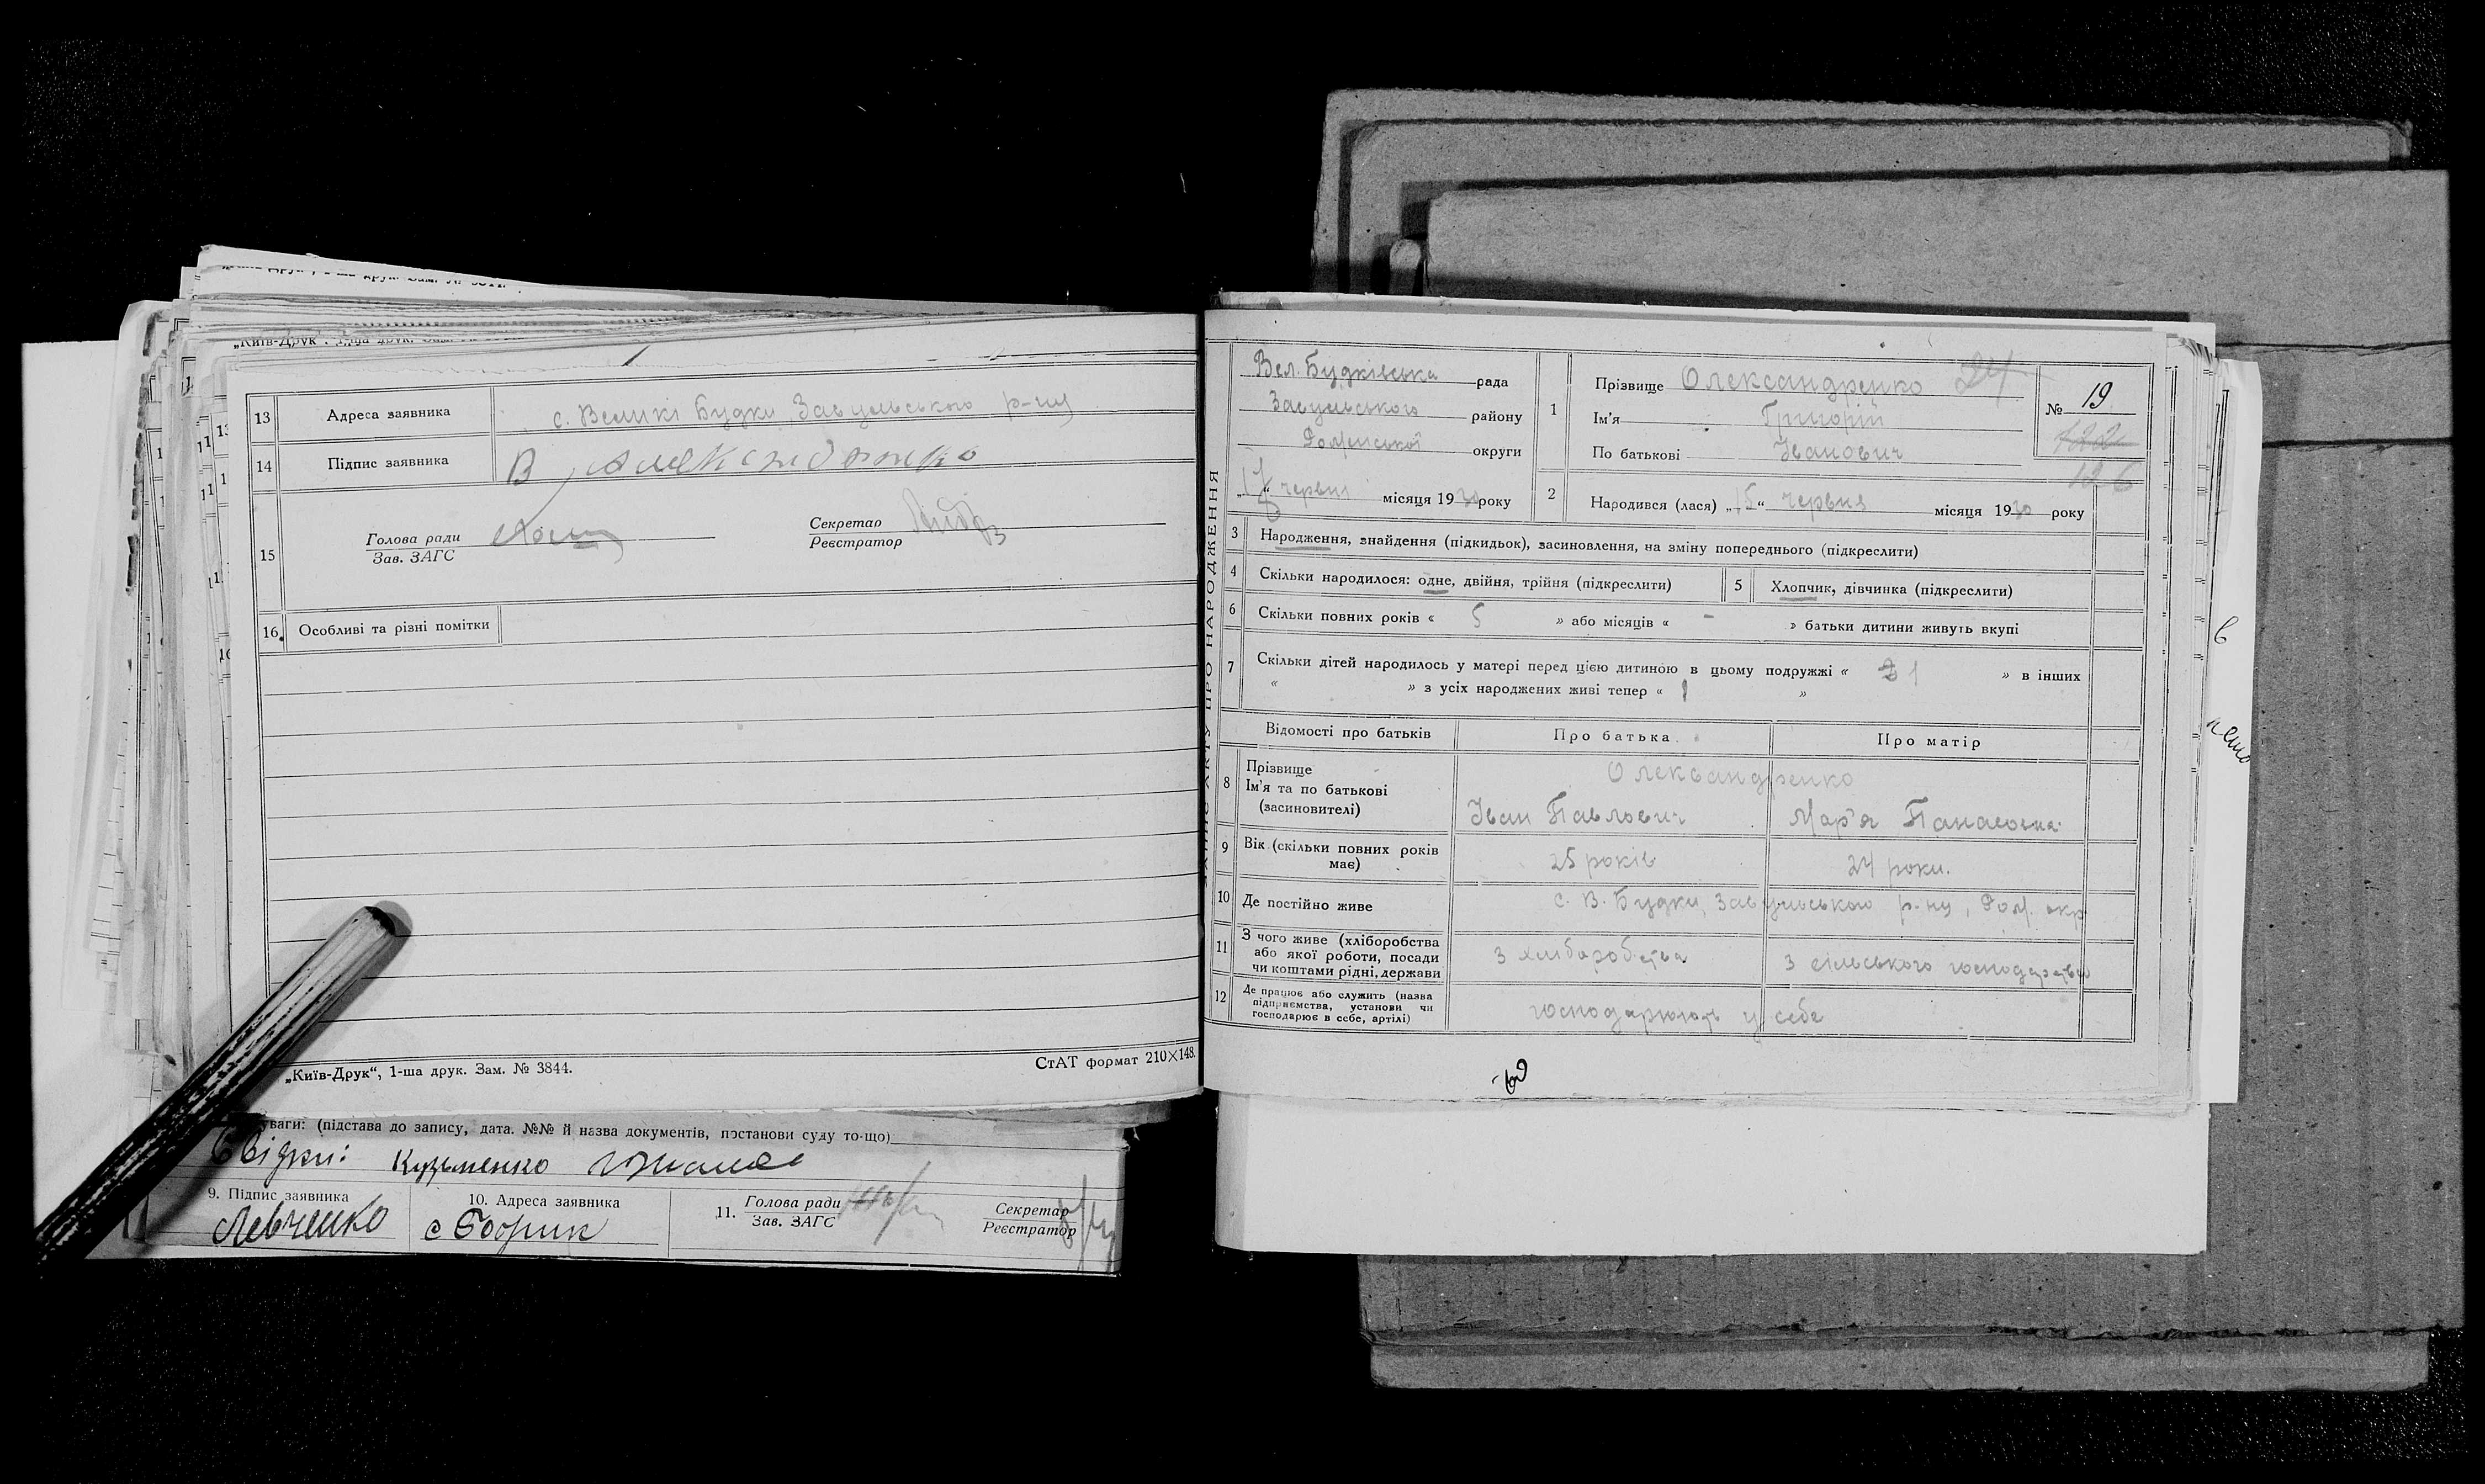 „Київ-Друк“, 1-ша друк. Зам.
13 Адреса заявника с. Великі Будки, Засульського р-ну
14 Підпис заявника В Александренко
15 Голова ради
Зав. ЗАГС
Секретар
Реєстратор
16. Особливі та різні помітки
„Київ-Друк“, 1-ша друк. Зам. № 3844. СтАТ формат 210×148.
уваги: (підстава до запису, дата. №№ й назва документів, постанови суду то-що)
Свідки: Кузьменко
9. Підпис заявника Левченко
10. Адреса заявника
11. Голова ради
Зав. ЗАГС
Секретар
Реєстратор
ПРО НАРОДЖЕННЯ
Вел. Будківська рада
Засульського району
Роменської округи
„17“ червня місяця 1930 року
1 Прізвище Олександренко 24
Ім'я Григорій
По батькові Іванович
№ 19
122
126
2 Народився (лася) „15“ червня місяця 1930 року
3 Народження, знайдення (підкидьок), засиновлення, на зміну попереднього (підкреслити)
4 Скільки народилося: одне, двійня, трійня (підкреслити) 5 Хлопчик, дівчинка (підкреслити)
6 Скільки повних років « 5 » або місяців « - » батьки дитини живуть вкупі
7 Скільки дітей народилось у матері перед цією дитиною в цьому подружжі « 1 » в інших
« » з усіх народжених живі тепер « 1 »
Відомості про батьків Про батька Про матір
8 Прізвище
Ім'я та по батькові
(засиновителі)
Олександренко
Іван Павлович Мар'я Панасовна
9 Вік (скільки повних років має) 25 років 24 роки.
10 Де постійно живе с. В. Будки, Засульського р-ну, Ром. окр
11 З чого живе (хліборобства
або якої роботи, посади
чи коштами рідні, держави
З хліборобства З сільського господарства
12 Де працює або служить (назва
підприємства, установи чи
господарює в себе, артілі)
господарюють у себе